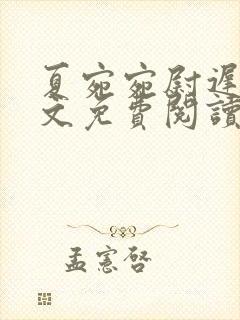 夏宛宛尉遲
文免費閱讀
孟憲啓